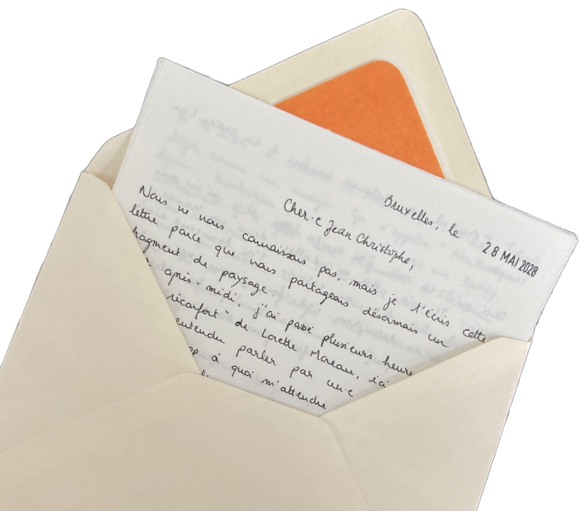 Bruxelles, le 28 MAI 2028
Cher·e Jean Christophe,
Nous ne nous connaissons pas, mais je t'écris cette
lettre parce que nous partageons désormais un
fragment de paysage.
après-midi, j'ai passé plusieurs heure
ricafort" de Lorette Moreau, ici
entendu parler par un·e
à quoi m'attendre